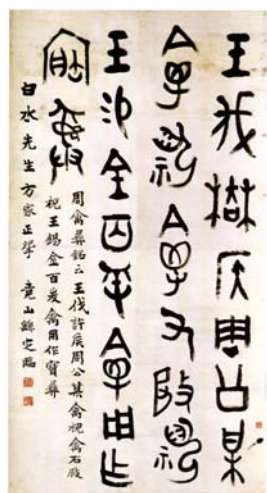 王伐侯周公某
禽祝禽又殿祝
王易金百寽禽用乍
寶彝
周禽彝銘云王伐許侯周公某禽祝禽右殿
祝王錫金百爰禽用作寶彝
白水先生方家正 竟山繇定臨